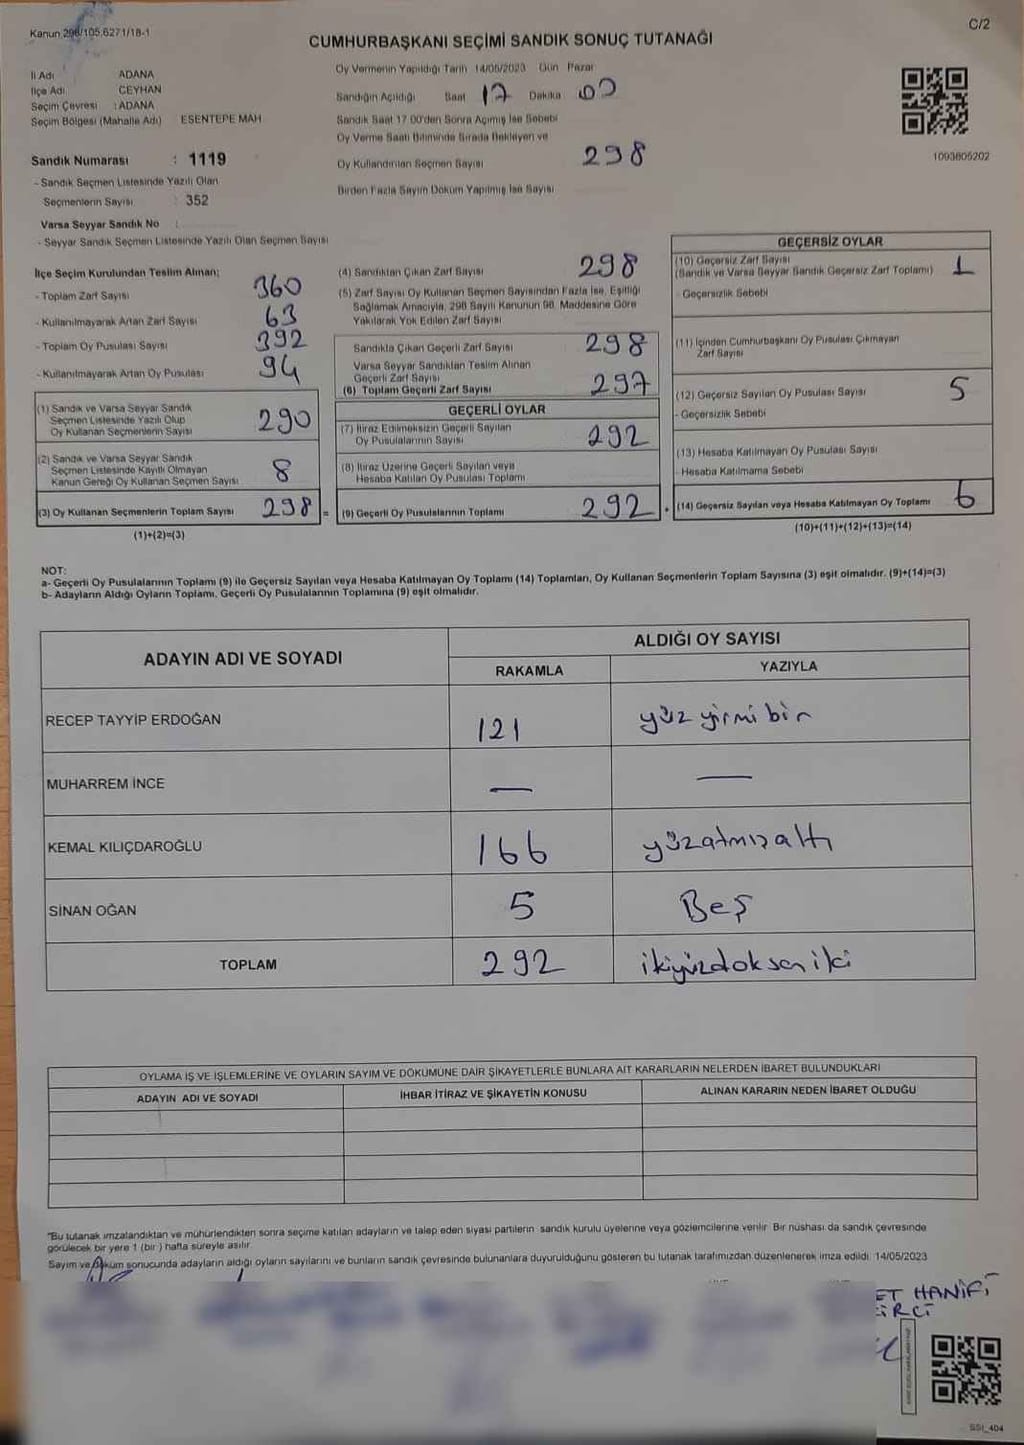 Kanun 298/105,6271/18-1
C/2
CUMHURBAŞKANI SEÇİMİ SANDIK SONUÇ TUTANAĞI
İl Adı ADANA
İlçe Adı CEYHAN
Seçim Çevresi : ADANA
Seçim Bölgesi (Mahalle Adı) ESENTEPE MAH
Sandık Numarası : 1119
- Sandık Seçmen Listesinde Yazılı Olan
Seçmenlerin Sayısı : 352
Varsa Seyyar Sandık No :
- Seyyar Sandık Seçmen Listesinde Yazılı Olan Seçmen Sayısı
Oy Vermenin Yapıldığı Tarih 14/05/2023 Gün Pazar
Sandığın Açıldığı Saat 17 Dakika 00
Sandık Saat 17:00'den Sonra Açımış İse Sebebi
Oy Verme Saati Bitiminde Sırada Bekleyen ve
Oy Kullandırılan Seçmen Sayısı 298
Birden Fazla Sayım Döküm Yapılmış İse Sayısı
1093805202
İlçe Seçim Kurulundan Teslim Alınan;
- Toplam Zarf Sayısı 360
- Kullanılmayarak Artan Zarf Sayısı 63
- Toplam Oy Pusulası Sayısı 392
- Kullanılmayarak Artan Oy Pusulası 94
(1) Sandık ve Varsa Seyyar Sandık
Seçmen Listesinde Yazılı Olup
Oy Kullanan Seçmenlerin Sayısı 290
(2) Sandık ve Varsa Seyyar Sandık
Seçmen Listesinde Kayıtlı Olmayan
Kanun Gereği Oy Kullanan Seçmen Sayısı 8
(3) Oy Kullanan Seçmenlerin Toplam Sayısı 298 =
(1)+(2)=(3)
(4) Sandıktan Çıkan Zarf Sayısı 298
(5) Zarf Sayısı Oy Kullanan Seçmen Sayısından Fazla İse, Eşitliği
Sağlamak Amacıyla, 298 Sayılı Kanunun 98. Maddesine Göre
Yakılarak Yok Edilen Zarf Sayısı
Sandıkta Çıkan Geçerli Zarf Sayısı 298
Varsa Seyyar Sandıktan Teslim Alınan
Geçerli Zarf Sayısı
(6) Toplam Geçerli Zarf Sayısı 297
GEÇERLİ OYLAR
(7) İtiraz Edilmeksizin Geçerli Sayılan
Oy Pusulalarının Sayısı 292
(8) İtiraz Üzerine Geçerli Sayılan veya
Hesaba Katılan Oy Pusulası Toplamı
(9) Geçerli Oy Pusulalarının Toplamı 292 +
GEÇERSİZ OYLAR
(10) Geçersiz Zarf Sayısı
(Sandık ve Varsa Seyyar Sandık Geçersiz Zarf Toplamı) 1
- Geçersizlik Sebebi
(11) İçinden Cumhurbaşkanı Oy Pusulası Çıkmayan
Zarf Sayısı
(12) Geçersiz Sayılan Oy Pusulası Sayısı 5
- Geçersizlik Sebebi
(13) Hesaba Katılmayan Oy Pusulası Sayısı
- Hesaba Katılmama Sebebi
(14) Geçersiz Sayılan veya Hesaba Katılmayan Oy Toplamı 6
(10)+(11)+(12)+(13)=(14)
NOT:
a- Geçerli Oy Pusulalarının Toplamı (9) ile Geçersiz Sayılan veya Hesaba Katılmayan Oy Toplamı (14) Toplamları, Oy Kullanan Seçmenlerin Toplam Sayısına (3) eşit olmalıdır. (9)+(14)=(3)
b- Adayların Aldığı Oyların Toplamı, Geçerli Oy Pusulalarının Toplamına (9) eşit olmalıdır.
ADAYIN ADI VE SOYADI
ALDIĞI OY SAYISI
RAKAMLA YAZIYLA
RECEP TAYYİP ERDOĞAN 121 yüz yirmi bir
MUHARREM İNCE — —
KEMAL KILIÇDAROĞLU 166 yüzatmışaltı
SİNAN OĞAN 5 Beş
TOPLAM 292 ikiyüzdoksaniki
OYLAMA İŞ VE İŞLEMLERİNE VE OYLARIN SAYIM VE DÖKÜMÜNE DAİR ŞİKAYETLERLE BUNLARA AİT KARARLARIN NELERDEN İBARET BULUNDUKLARI
ADAYIN ADI VE SOYADI İHBAR İTİRAZ VE ŞİKAYETİN KONUSU ALINAN KARARIN NEDEN İBARET OLDUĞU
*Bu tutanak imzalandıktan ve mühürlendikten sonra seçime katılan adayların ve talep eden siyasi partilerin sandık kurulu üyelerine veya gözlemcilerine verilir. Bir nüshası da sandık çevresinde
görülecek bir yere 1 (bir) hafta süreyle asılır.
Sayım ve döküm sonucunda adayların aldığı oyların sayılarını ve bunların sandık çevresinde bulunanlara duyurulduğunu gösteren bu tutanak tarafımızdan düzenlenerek imza edildi. 14/05/2023
ET HANİFİ
İRCİ
SSI_404